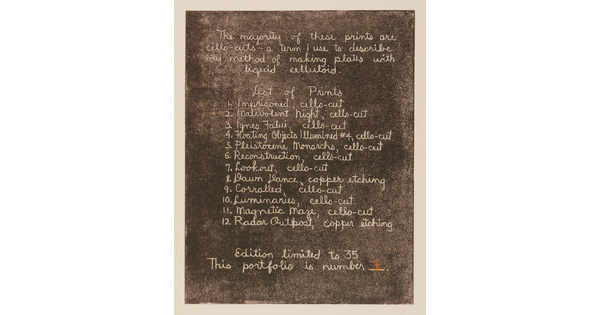 The majority of these prints are
cello-cuts - a term I use to describe
my method of making plates with
liquid celluloid.
List of Prints
1. Imprisoned, cello-cut
2. Malevolent Night, cello-cut
3. Ignes Fatui, cello-cut
4. Floating Objects Illumined #4, cello-cut
5. Pleistocene Monarchs, cello-cut
6. Reconstruction, cello-cut
7. Lookout, cello-cut
8. Dawn Dance, copper etching
9. Corralled, cello-cut
10. Luminaries, cello-cut
11. Magnetic Maze, cello-cut
12. Radar Outpost, copper etching
Edition limited to 35
This portfolio is number